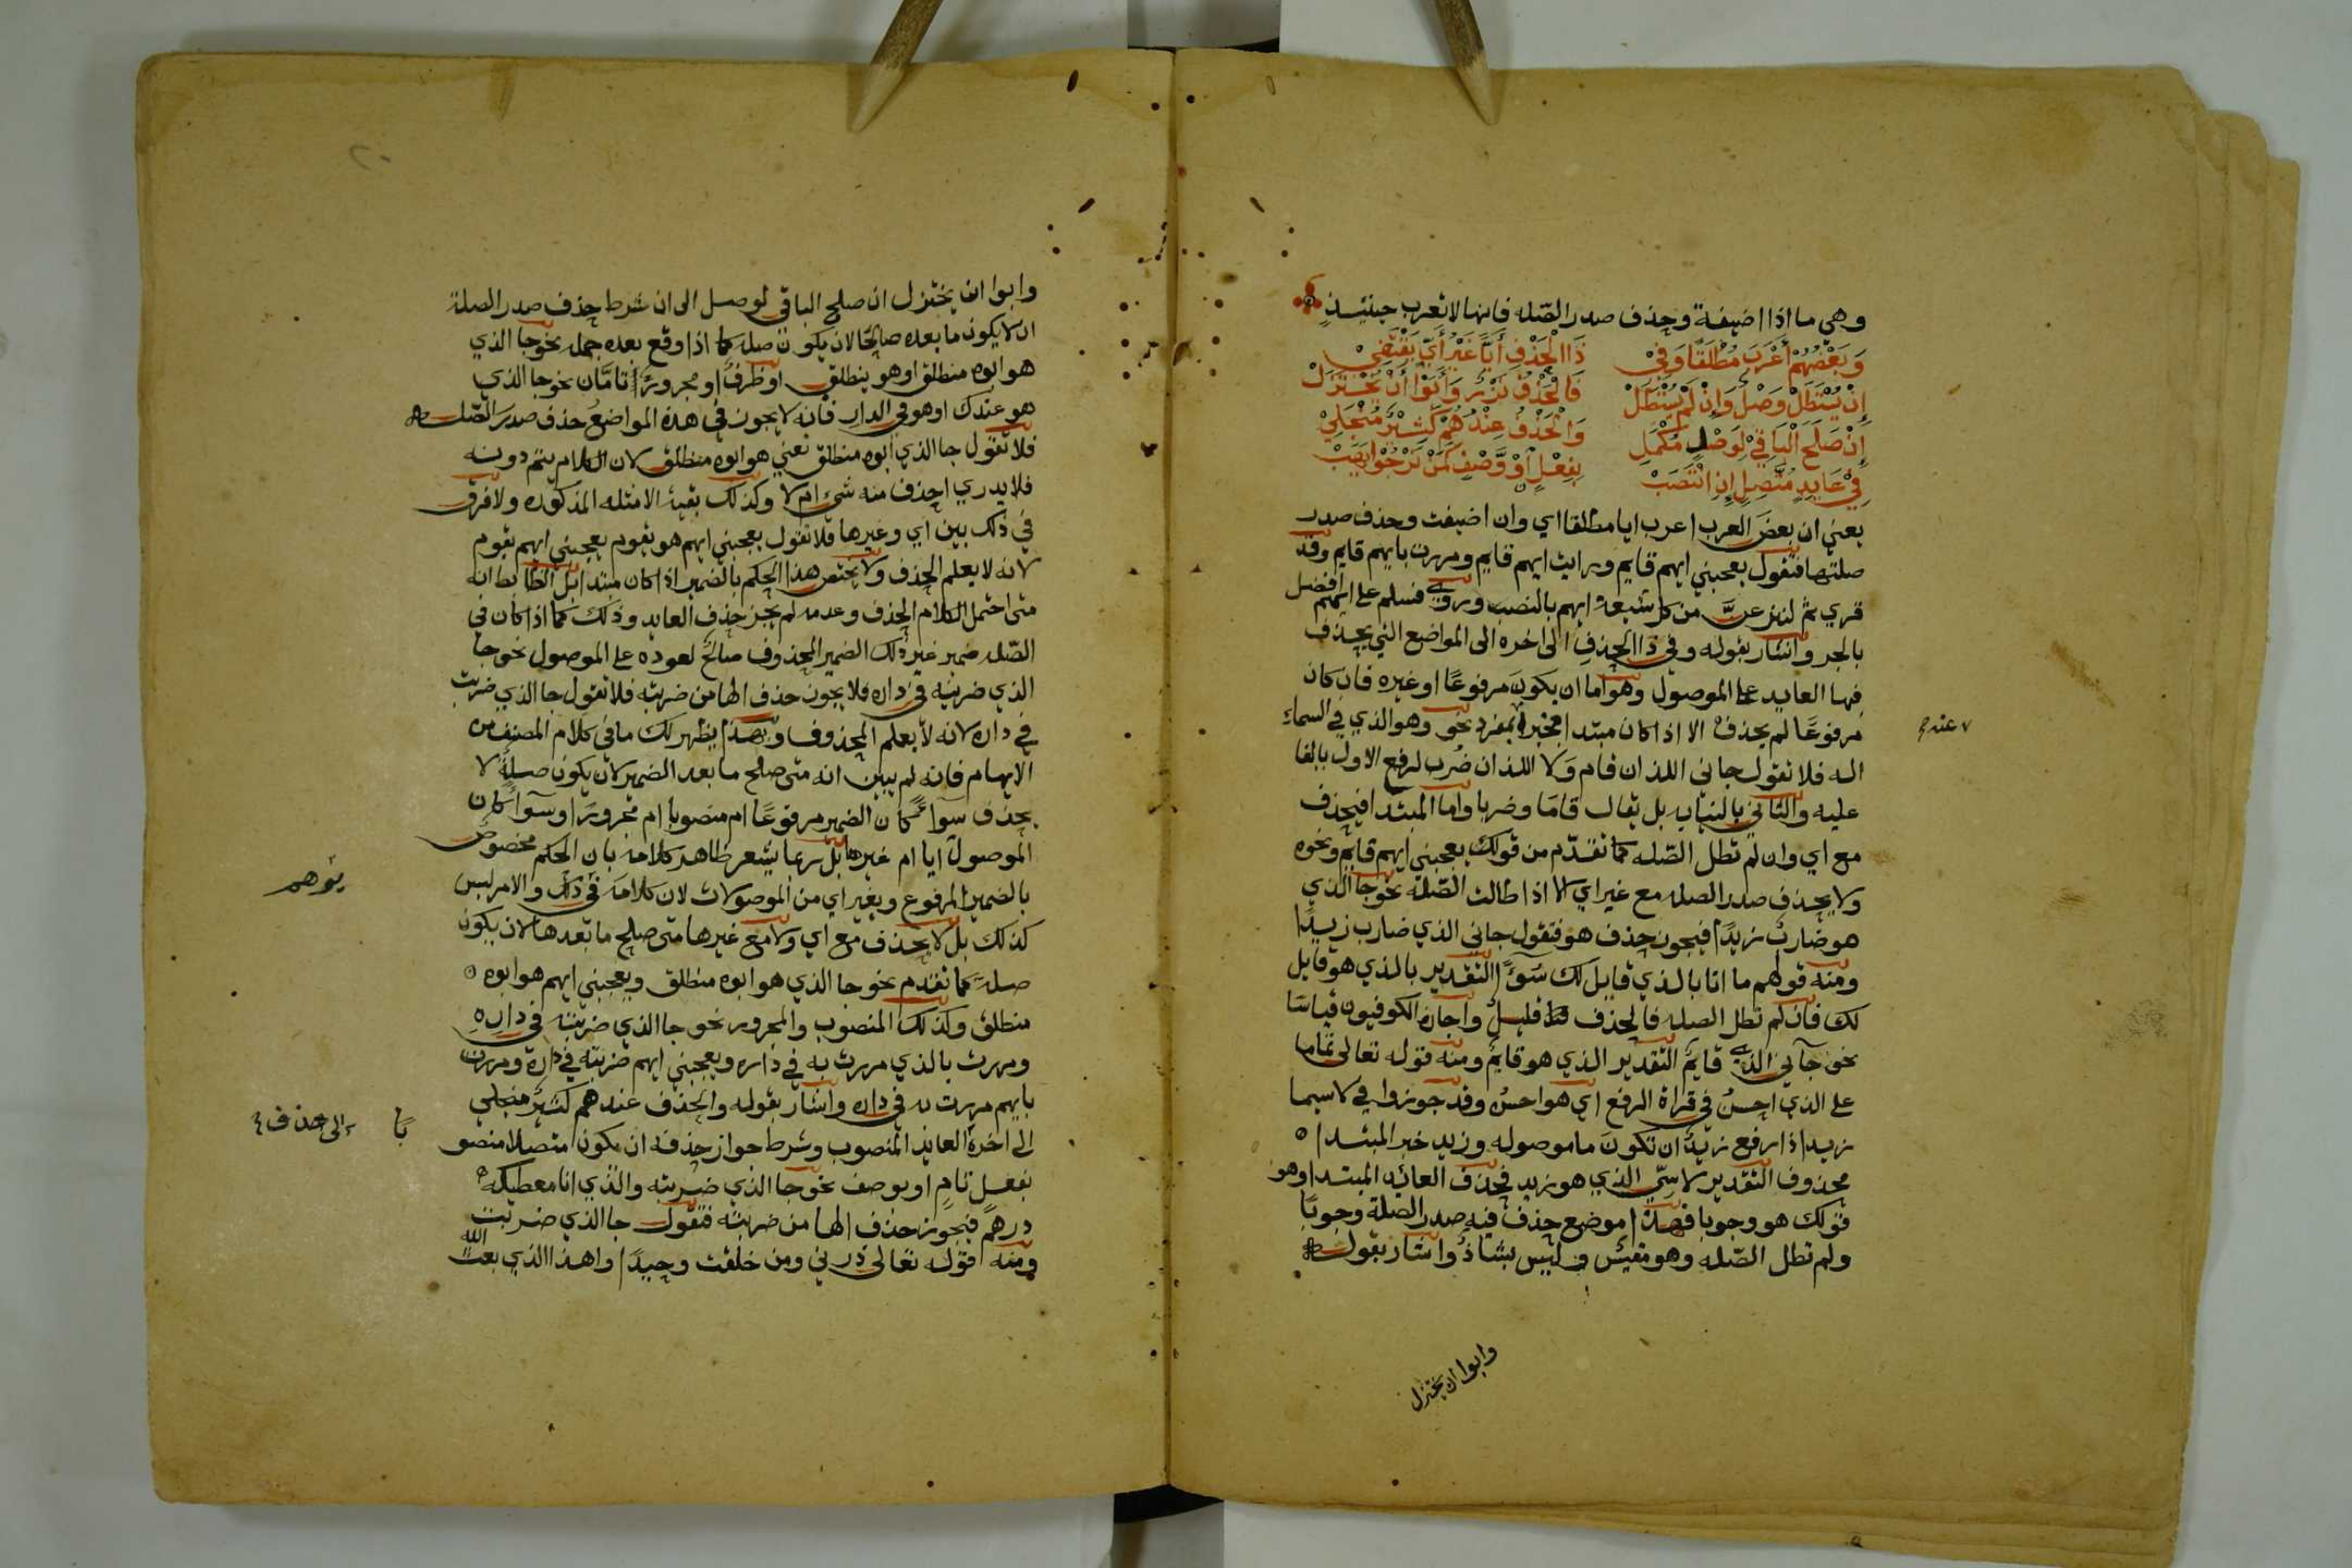 وهي ما اذا اضيفة وحذف صدر الصّله فانها لا تعرب حينئذٍ
وَبَعْضُهُمْ أَعْرَبَ مُطْلَقًا وَفِيْ ذَا الْحَذْفِ أَيًّا غَيْرُ أَيٍّ يَقْتَفِيْ
إِنْ يُسْتَطَلْ وَصْلٌ وَإِنْ لَمْ يُسْتَطَلْ فَالْحَذْفُ نَزْرٌ وَأَبَوْا أَنْ يُخْتَزَلْ
إِنْ صَلَحَ الْبَاقِيْ لِوَصْلٍ مُكْمِلِ وَالْحَذْفُ عِنْدَهُمْ كَثِيْرٌ مُنْجَلِيْ
فِيْ عَايِدٍ مُتَّصِلٍ إِنِ انْتَصَبْ بِفِعْلٍ اَوْ وَصْفٍ كَمَنْ نَرْجُوْا يَهَبْ
يعني ان بعضَ العرب اعرب ايا مطلقا اي وان اضيفت وحذف صدر
صلتها فتقول يعجبني ايهم قايم ورايت ايهم قايم ومررت بايهم قايم وقد
قري ثم لننزعنّ من كل شيعة ايهم بالنصب وروي فسلم على ايهم افضل
بالجر واشار بقوله وفي ذا الحذفِ الى اخره الى المواضع التي يحذف
فيها العايد على الموصول وهو اما ان يكونَ مرفوعًا او غيره فان كان
مرفوعًا لم يحذف الا اذا كان مبتدا مخبرا بمفرد نحو وهو الذي في السماء
عنه
اله فلا تقول جاني اللذان قام وَلا اللذان ضُرب لرفع الاول بالفا
عليه والثاني بالنيابه بل يقال قامَا وضربا واما المبتدا فيحذف
مع اي وان لم تطل الصّله كما تقدّم من قولك يعجبني ايهم قايم ونحوه
ولا يحذف صدر الصله مع غير اي الا اذا طالت الصّلة نحو جا الذي
هو ضاربٌ زيدًا فيجوز حذف هو فتقول جاني الذي ضارب زيدًا
ومنه قولهم ما انا بالذي قايل لك سَوءًا التقدير بالذي هو قايل
لك فان لم تطل الصله فالحذف قليلٌ واجازه الكوفيون قياسَا
نحو جآني الذي قايمٌ التقدير الذي هو قايمٌ ومنه قوله تعالى تماما
على الذي احسنُ في قراة الرفع اي هو احسنُ وقد جوزوا في لا سيما
زيد اذا رفع زيدٌ ان تكونَ ما موصوله وزيد خبر المبتدا
محذوف التقدير لا سيّ الذي هو زيد فحذف العائد المبتدا وهو
قولك هو وجوبا فهذا موضع حذف فيه صدر الصلة وجوبًا
ولم تطل الصّله وهو مقيسٌ وليس بشاذٌ واشار بقوله
وابوا ان يختزل
وابوا ان يختزل ان صلح الباقي لوصل الى ان شرط حذف صدر الصلة
ان لا يكون ما بعده صالحًا لان يكون صله كما اذا وقع بعده جمله نحو جا الذي
هو ابوه منطلق او هو ينطلق او ظرفٌ او مجرورٌ تامَّان نحو جا الذي
هو عندك او هو في الدار فانه لا يجوز في هذه المواضع حذف صدر الصّله
فلا تقول جا الذي ابوه منطلق تعني هو ابوه منطلق لان الكلام يتم دونه
فلا يدري احذف منه شيءٌ ام لا وكذلك بقية الامثله المذكوره ولا فرق
في ذلك بين اي وغيرها فلا تقول يعجبني ايهم هو يقوم يعجبني ايهم يقوم
لانه لا يعلم الحذف ولا يختص هذا الحكم بالضمير اذا كان مبتدا بل الضابط انه
متى احتمل الكلام الحذف وعدمه لم يجز حذف العايد وذلك كما اذا كان في
الصّله ضمير غير ذلك الضمير المحذوف صالحٌ لعوده على الموصول نحو جا
الذي ضربته في داره فلا يجوز حذف الها من ضربته فلا تقول جا الذي ضربت
في داره لانه لا يعلم المحذوف وبهذا يظهر لك ما في كلام المصنف من
الايهام فانه لم يبين انه متى صلح ما بعد الضمير لان يكون صلةً لا
يحذف سوآءً كان الضمير مرفوعًا ام منصوبا ام مجرورًا وسوآءً كان
الموصول ايا ام غيرها بل ربما يشعر ظاهر كلامه بان الحكم مخصوص
بالضمير المرفوع وبغير اي من الموصولات لان كلامَه في ذلك والامر ليس
يوهم
كذلك بل لا يحذف مع اي ولا مع غيرها متى صلح ما بعدها لان يكون
صلة كما تقدم نحو جا الذي هو ابوه منطلق ويعجبني ايهم هو ابوه
منطلق وكذلك المنصوب والمجرور نحو جا الذي ضربته في دارهِ
ومررت بالذي مررت به في داره ويعجبني ايهم ضربته في داره ومررت
بايهم مررت به في داره واشار بقوله والحذف عندهم كثيرٌ منجلي
الى اخره العايد المنصوب وشرط جواز حذفه ان يكون متصلا منصو
بًا الى حذف
بفعل تامٍ او بوصف نحو جا الذي ضربته والذي انا معطيكه
درهمٌ فيجوز حذف الها من ضربته فتقول جا الذي ضربت
ومنه قوله تعالى ذرني ومن خلقت وحيدًا واهذا الذي بعث الله